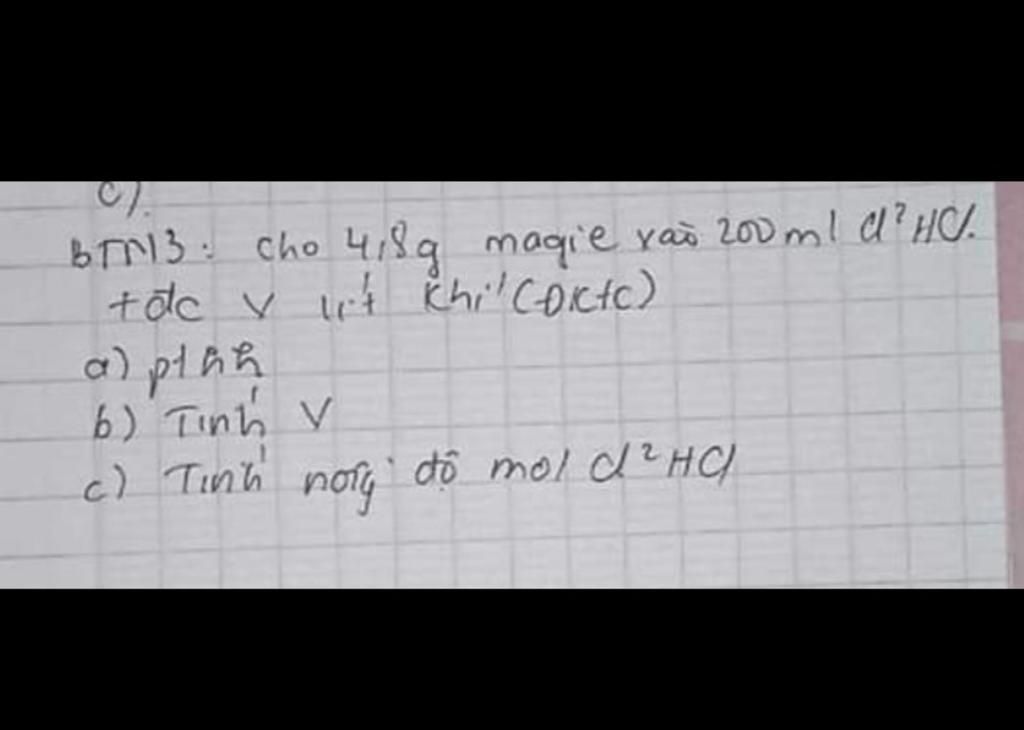 c).
BTN3: cho 4,8g magie vào 200ml d²HCl.
tđc V lít khí (ĐKtc)
a) pthh
b) Tính V
c) Tính nồng độ mol d²HCl